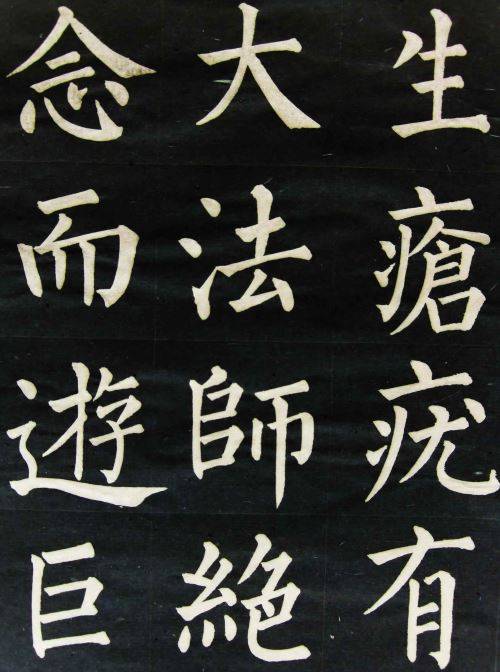 生瘡疣有
大法師絶
念而遊巨